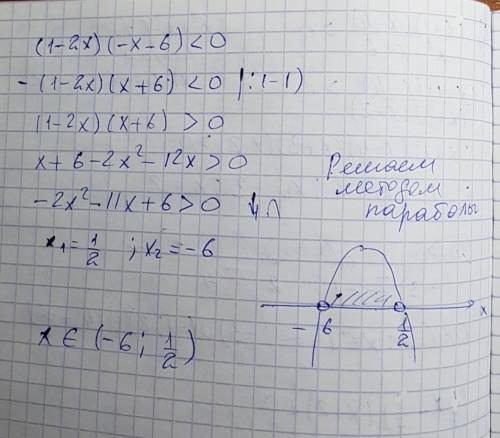 (1-2x)(-x-6)<0
-(1-2x)(x+6)<0 |:(-1)
(1-2x)(x+6)>0
x+6-2x²-12x>0
-2x²-11x+6>0 ↓∩
x₁=1/2 ; x₂=-6
x ∈ (-6; 1/2)
Решаем
методом
параболы
-6 1/2 x